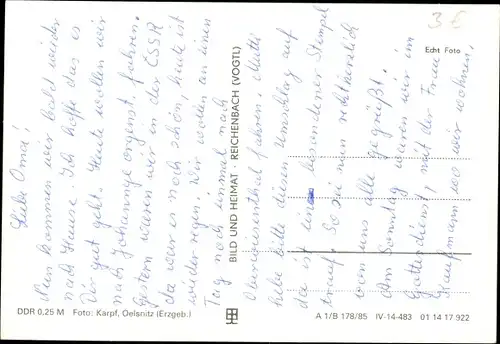 Liebe Oma!
Nun kommen wir bald wieder
nach Hause. Ich hoffe das es
Dir gut geht. Heute wollen wir
nach Johanngeorgenst. fahren.
Gestern waren wir in der ČSSR
da war es noch schön, heute ist
wieder regen. Wir wollen an einen
Tag noch einmal nach
Oberwiesenthal fahren. Mutti
hebe bitte diesen Umschlag auf
da ist ein besonderer Stempel
drauf. So sei nun recht herzlich
von uns alle gegrüßt.
Am Sonntag waren wir im
Gottesdienst, mit der Frau
wo wir wohnen.
BILD UND HEIMAT · REICHENBACH (VOGTL)
3 €
Echt Foto
DDR 0,25 M Foto: Karpf, Oelsnitz (Erzgeb.)
A 1/B 178/85 IV-14-483 01 14 17 922